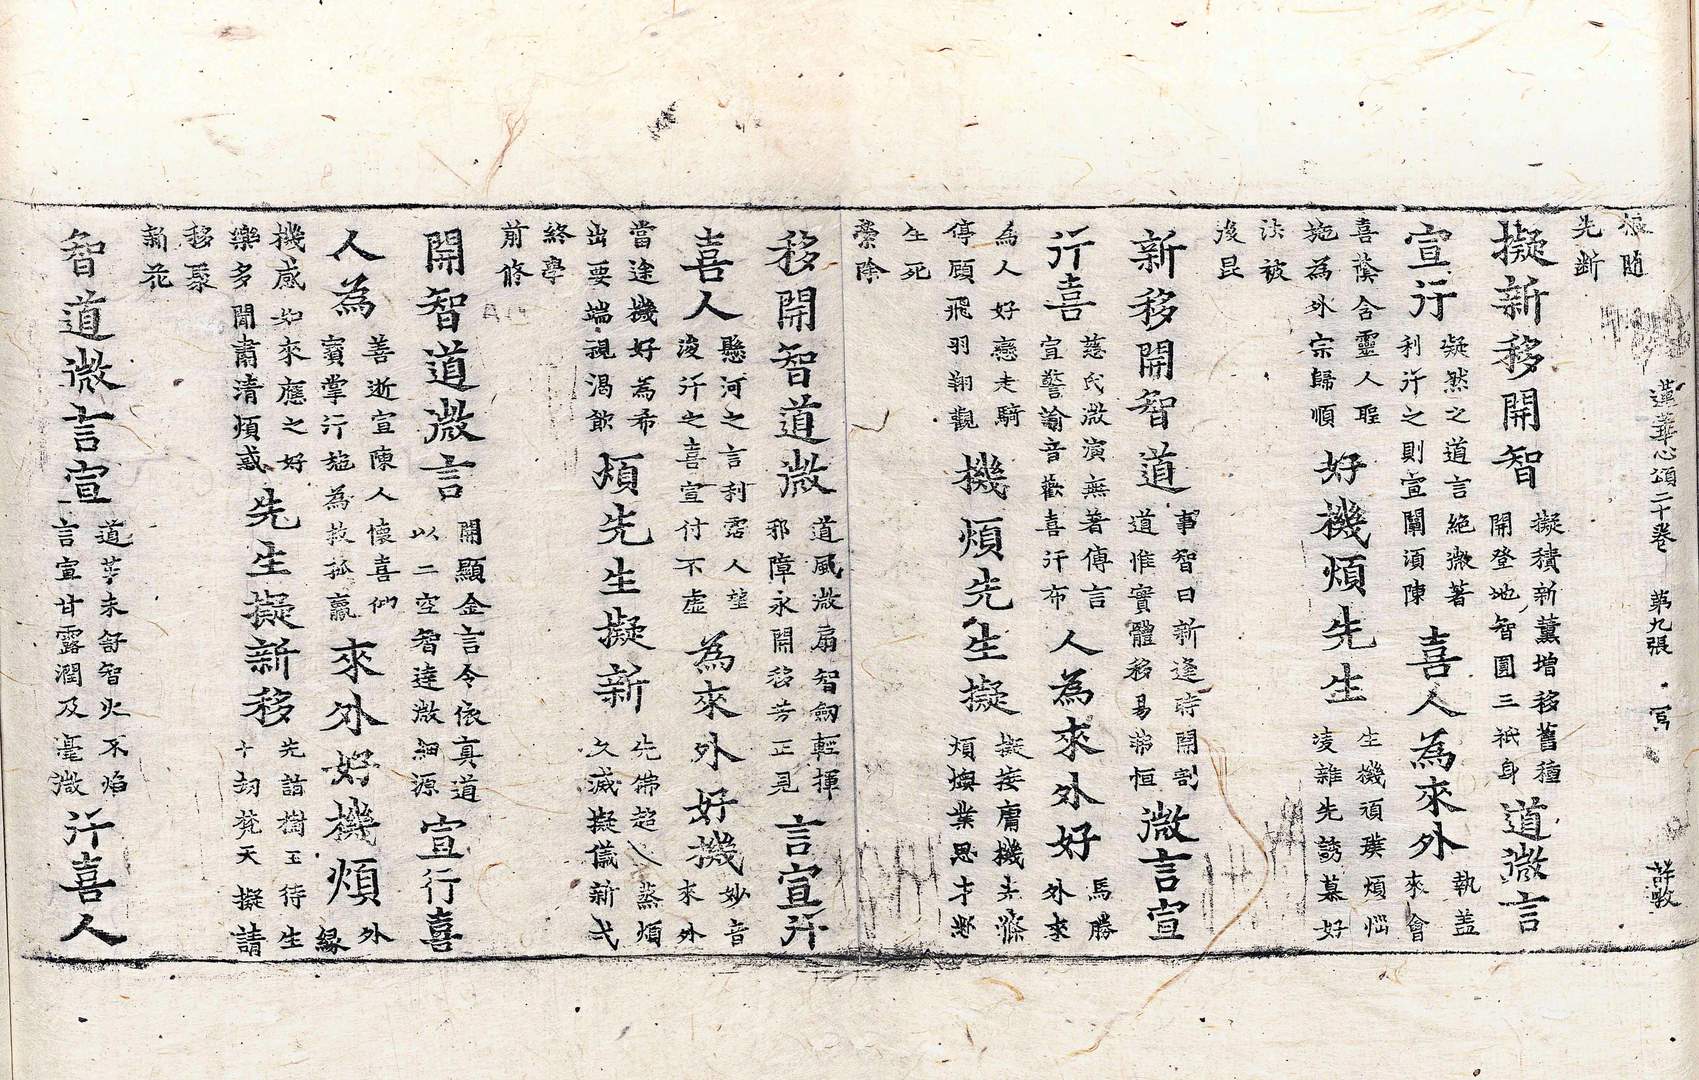 蓮華心頌二十卷 第九張
極隨
先断
擬新移開智
擬積新薰增移舊種
開登地智圓三祇身
道微言
宣行
凝然之道言絕微著
利行之則宣闡湏陳
喜人為來外
執盖
來會
喜蔭含靈人聖
施為外宗歸順
好機煩先生
生機頑璞煩惱
凌雜先誘募好
法被
後昆
新移開智道
事智日新逢時開割
道惟實體移易弗恒
微言宣
行喜
慈氏微演無著傳言
宣警諭音歡喜行布
人為來外好
馬勝
外來
為人好戀走騎
停顧飛羽翔觀
機煩先生擬
擬接庸機未滌
煩燠業思才
生死
縈除
移開智道微
道風微扇智劒輕揮
邪障永開移芳正見
言宣行
喜人
懸河之言利霑人望
浚行之喜宣付不虛
為來外好機
妙音
來外
當途機好為希
出要端視渴飲
煩先生擬新
先佛超 蒸煩
久滅擬儀新弌
終學
前修
開智道微言
開顯金言令依真道
以二空智達微細源
宣行喜
人為
善逝宣陳人懷喜仰
寶掌行施為救孤羸
來外好機煩
外
緣
機感如來應之好
樂多聞肅清煩惑
先生擬新移
先詣樹王待生
十劫梵天擬請
移聚
新花
智道微言宣
道芽未舒智火不焰
言宣甘露潤及毫微
行喜人